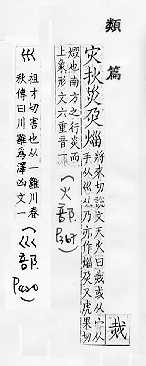 類篇
灾秋災
將來切說文天火曰烖或从宀从
手从巛乃亦作
又虎果切
燬也南方之行炎而
上象形文六重音一
(火部
巛
祖才切害也从一雝川春
秋傳曰川雝爲澤凶文一
(巛部
烖